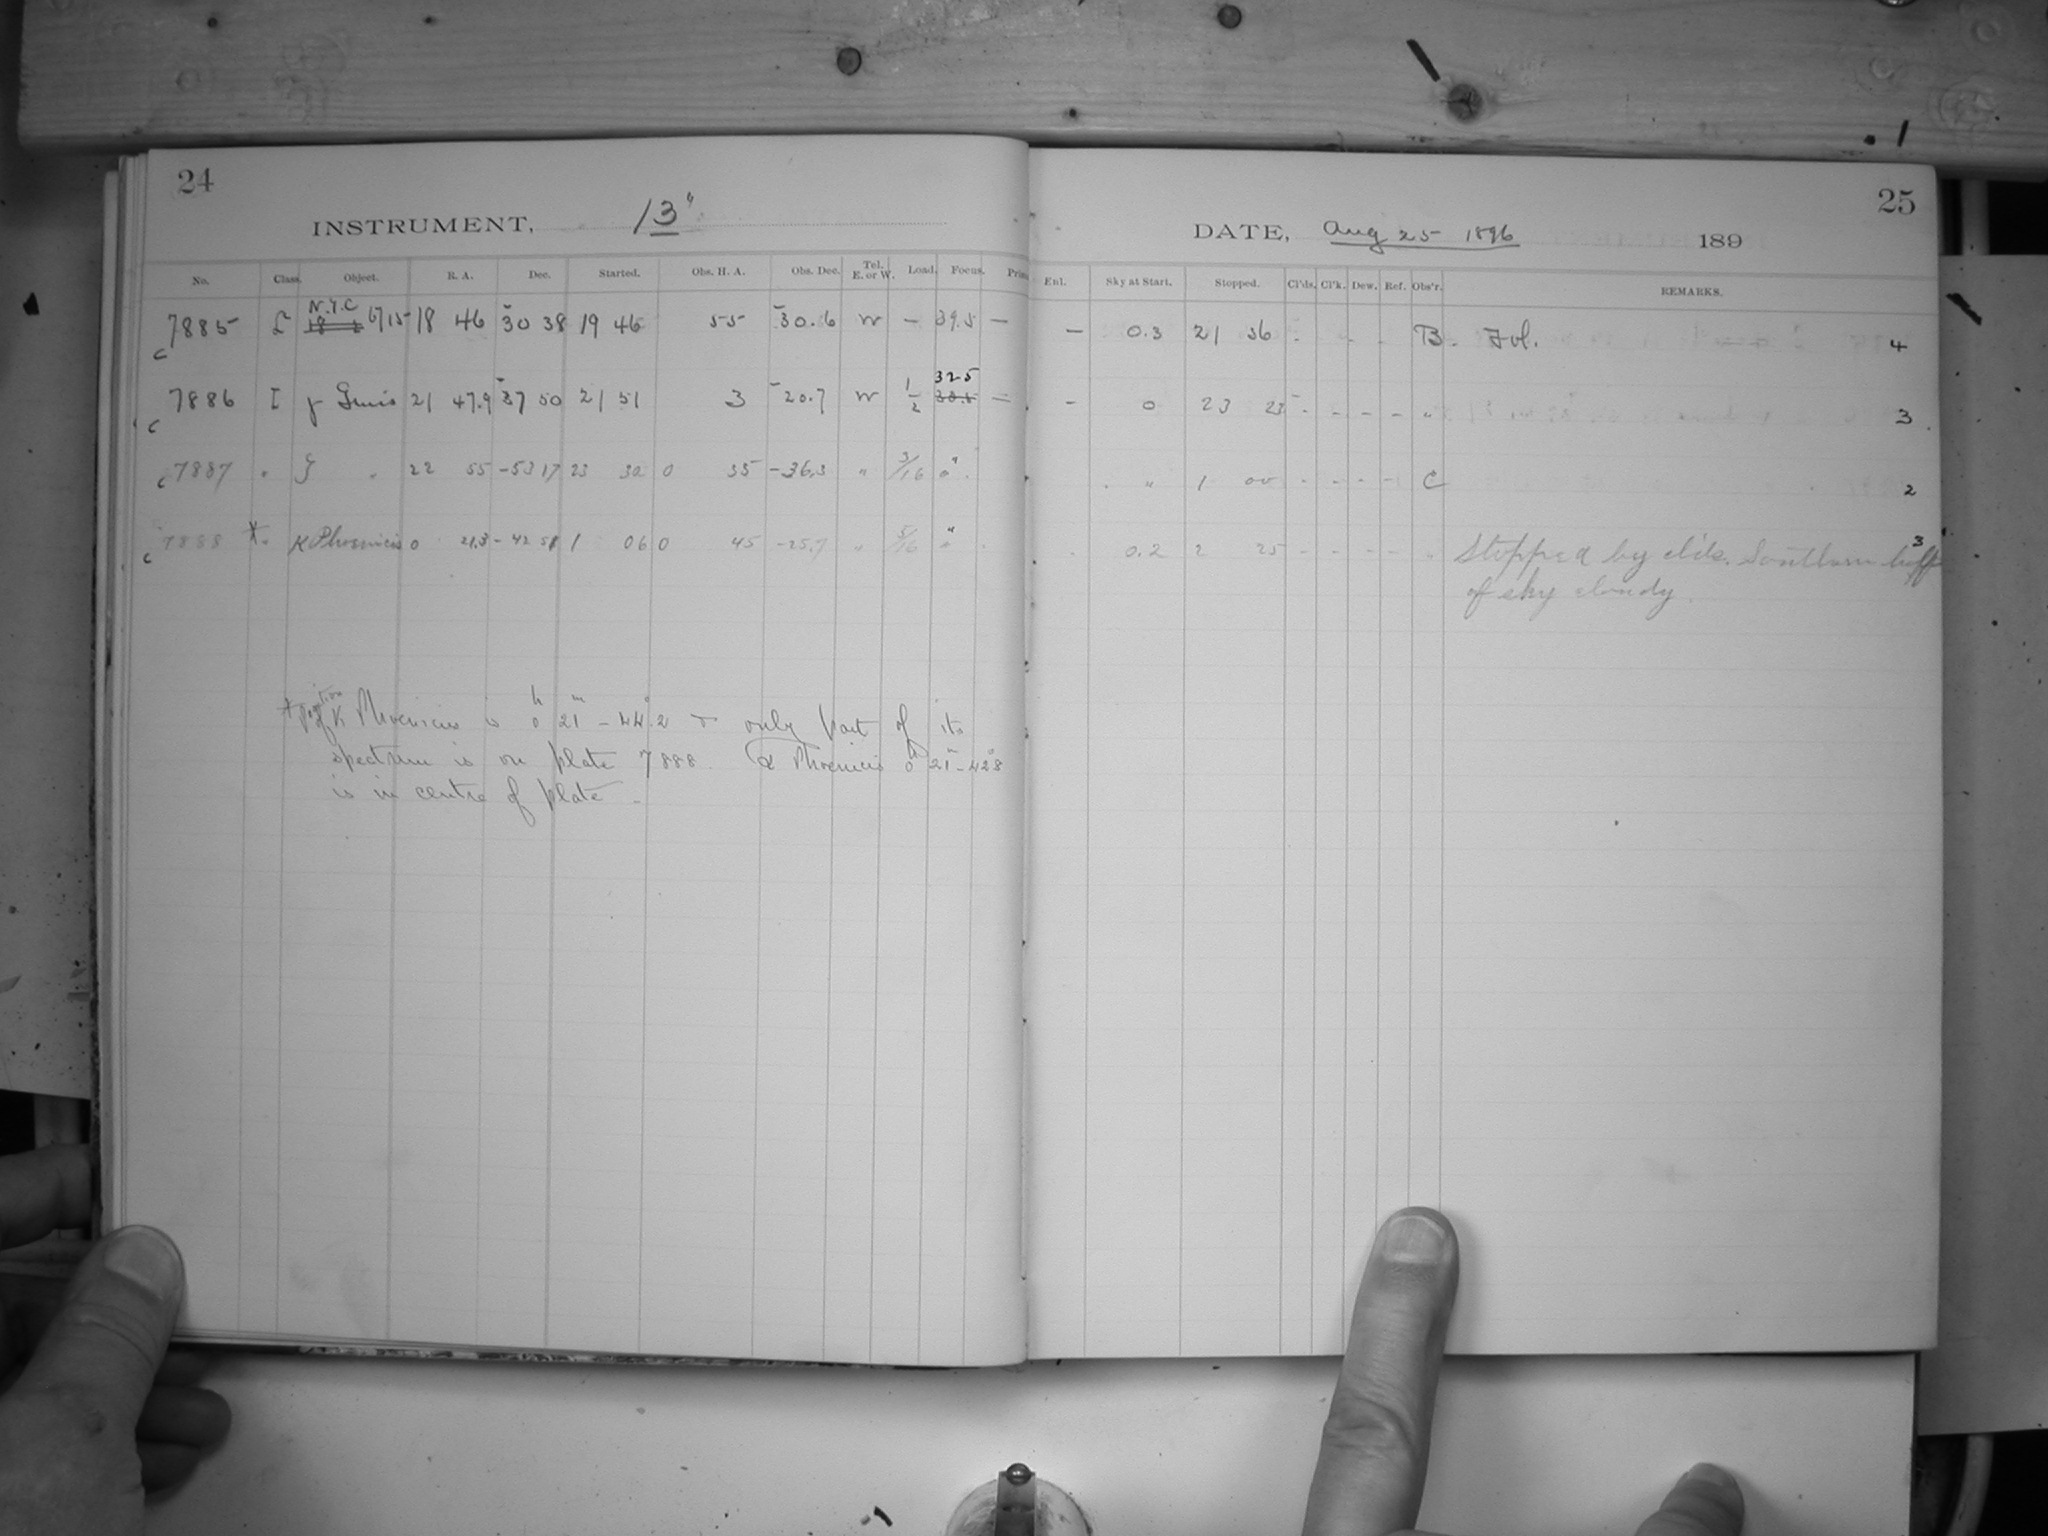 24
INSTRUMENT, 13"
No. Class. Object. R. A. Dec. Started. Obs. H. A. Obs. Dec. Tel. E. or W. Load. Focus.
c 7885 N.Y.C 6715 18 46 -30 38 19 46 55 -30.6 W - 39.5 -
c 7886 I γ Gruis 21 47.9 -37 50 21 51 3 -20.7 W 1/2 32.5 -
c 7887 " " 22 55 -53 17 23 32 0 35 -36.3 " 3/16 "
c 7888 *" K Phoenicis 0 21.3 -42 51 1 06 0 45 -25.7 " 5/16 "
* position of K Phoenicis is 0h 21m -44°.2 & only part of its
spectrum is on plate 7888. α Phoenicis 0h 21m -42°8
is in centre of plate -
25
DATE, Aug 25 1896 189
Enl. Sky at Start. Stopped. Cl'ds. Cl'k. Dew. Ref. Obs'r. REMARKS.
- 0.3 21 36 - - - B. 4
- 0 23 23 - - - - " 3
" 1 00 - - - - C 2
0.2 2 25 - - - - " Stopped by clds. Southern half 3
of sky cloudy.